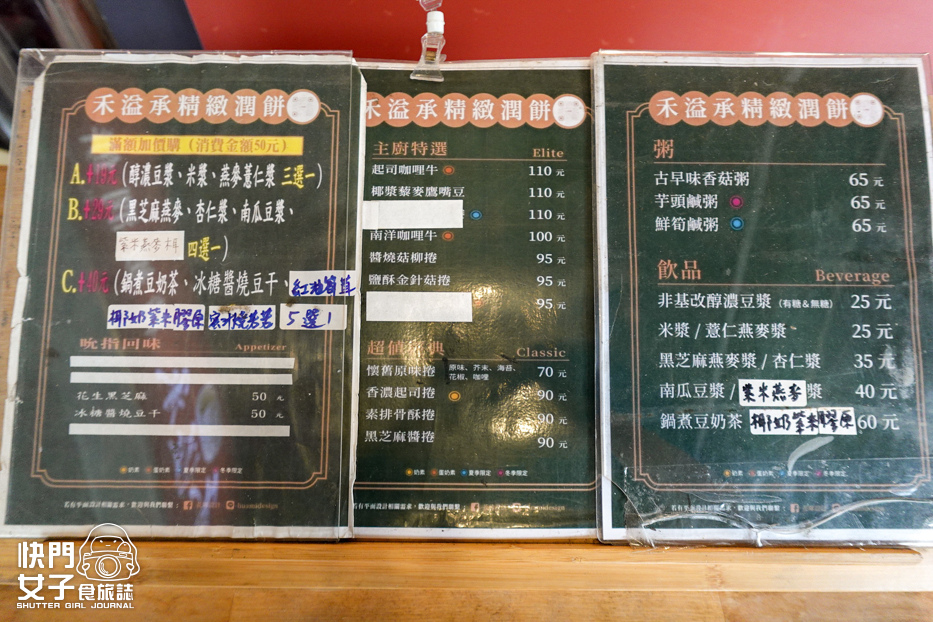 禾溢承精緻潤餅
滿額加價購（消費金額50元）
A.+10元（醇濃豆漿、米漿、燕麥薏仁漿 三選一）
B.+20元（黑芝麻燕麥、杏仁漿、南瓜豆漿、
紫米燕麥 四選一）
C.+40元（鍋煮豆奶茶、冰糖醬燒豆干、紅油筍茸
椰奶紫米膠原 5選1
吮指回味 Appetizer
花生黑芝麻 50 元
冰糖醬燒豆干 50 元
奶素 蛋奶素 夏季限定 冬季限定
若有平面設計相關需求，歡迎與我們聯繫：
禾溢承精緻潤餅
主廚特選 Elite
起司咖哩牛 110 元
椰漿藜麥鷹嘴豆 110 元
110 元
南洋咖哩牛 100 元
醬燒菇柳捲 95 元
鹽酥金針菇捲 95 元
95 元
超值經典 Classic
懷舊原味捲 原味、芥末、海苔、花椒、咖哩 70 元
香濃起司捲 90 元
素排骨酥捲 90 元
黑芝麻醬捲 90 元
奶素 蛋奶素 夏季限定 冬季限定
若有平面設計相關需求，歡迎與我們聯繫：
禾溢承精緻潤餅
粥
古早味香菇粥 65 元
芋頭鹹粥 65 元
鮮筍鹹粥 65 元
飲品 Beverage
非基改醇濃豆漿（有糖&無糖） 25 元
米漿 / 薏仁燕麥漿 25 元
黑芝麻燕麥漿 / 杏仁漿 35 元
南瓜豆漿 / 紫米燕麥漿 40 元
鍋煮豆奶茶 椰奶紫米膠原 60 元
奶素 蛋奶素 夏季限定 冬季限定
若有平面設計相關需求，歡迎與我們聯繫：
快門
女子食旅誌
SHUTTER GIRL JOURNAL